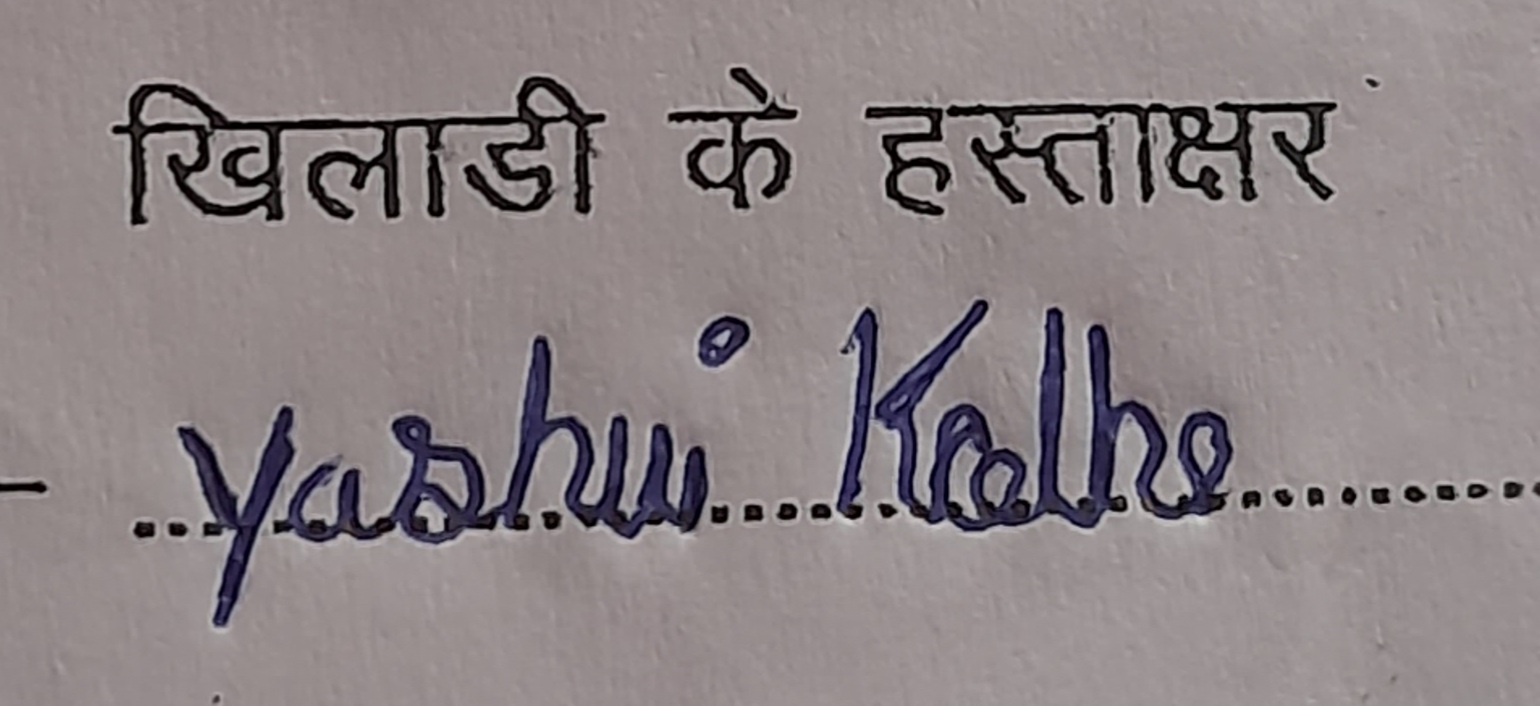 खिलाडी के हस्ताक्षर
Yashvi Kolhe